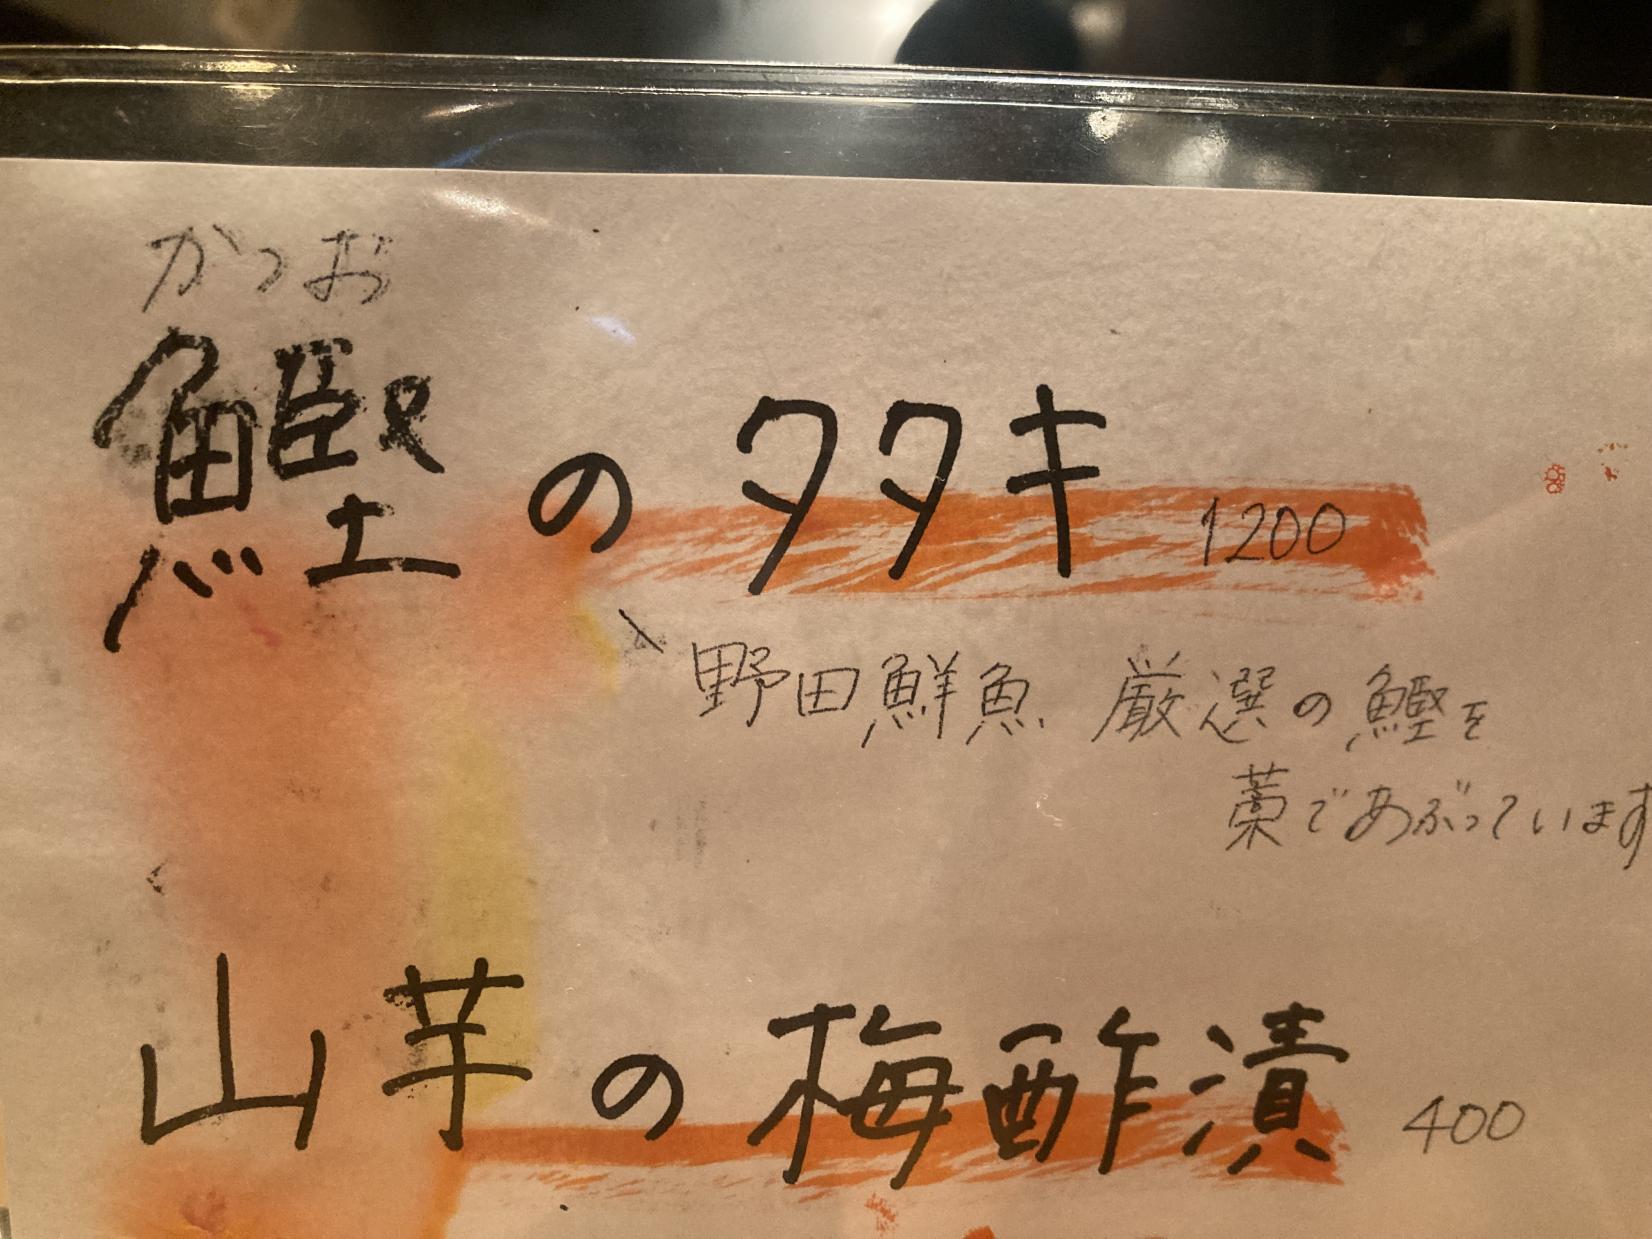 かつお
鰹のタタキ 1200
野田鮮魚 厳選の鰹を
藁であぶっています
山芋の梅酢漬 400